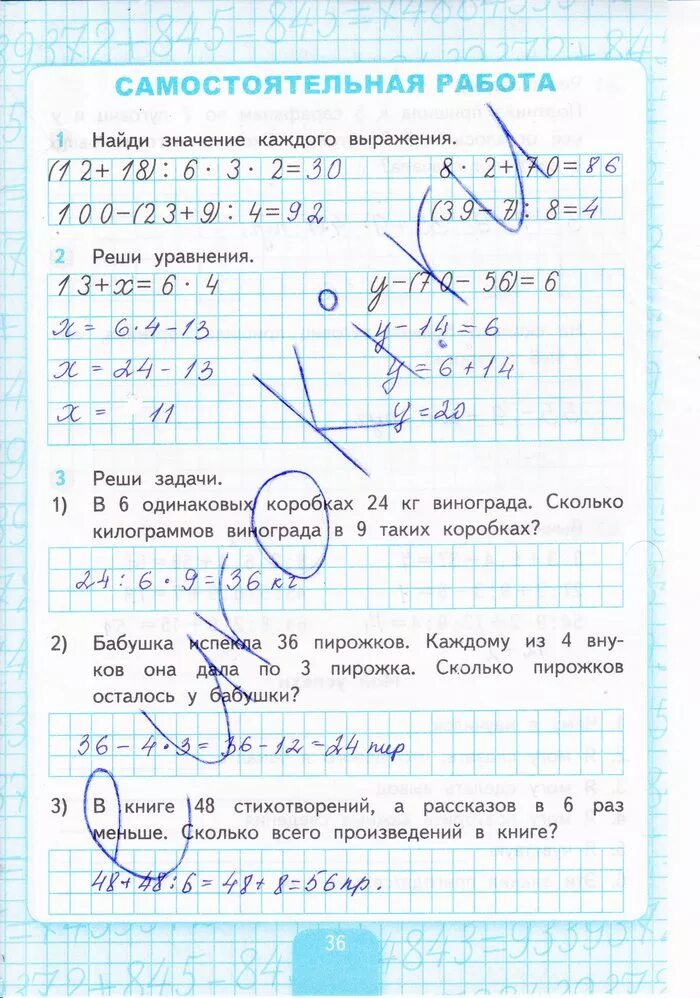 САМОСТОЯТЕЛЬНАЯ РАБОТА
1 Найди значение каждого выражения.
(12+18):6·3·2=30 8·2+70=86
100-(23+9):4=92 (39-7):8=4
2 Реши уравнения.
13+x=6·4 y-(70-56)=6
x=6·4-13 y-14=6
x=24-13 y=6+14
x= 11 y=20
3 Реши задачи.
1) В 6 одинаковых коробках 24 кг винограда. Сколько
килограммов винограда в 9 таких коробках?
24:6·9=36 кг
2) Бабушка испекла 36 пирожков. Каждому из 4 вну-
ков она дала по 3 пирожка. Сколько пирожков
осталось у бабушки?
36-4·3=36-12=24 пир
3) В книге 48 стихотворений, а рассказов в 6 раз
меньше. Сколько всего произведений в книге?
48+48:6=48+8=56 пр.
36